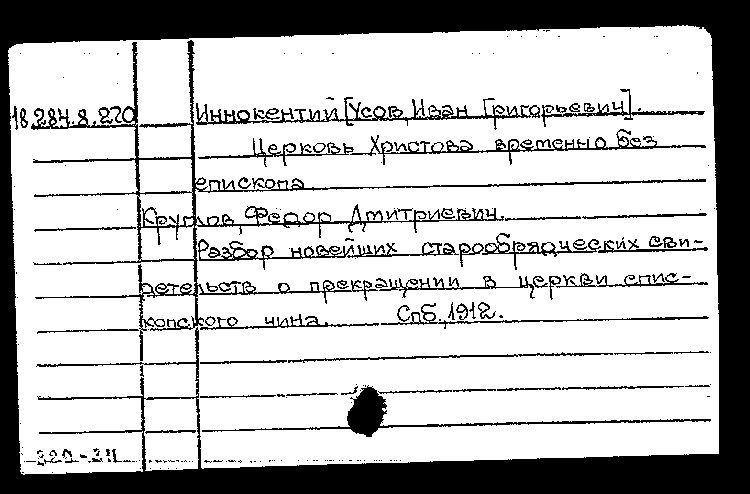 18.284.8.270 Иннокентий [Усов, Иван Григорьевич].
Церковь Христова временно без
епископа
Круглов, Федор Дмитриевич.
Разбор новейших старообрядческих сви-
детельств о прекращении в церкви епис-
копского чина. Спб, 1912.